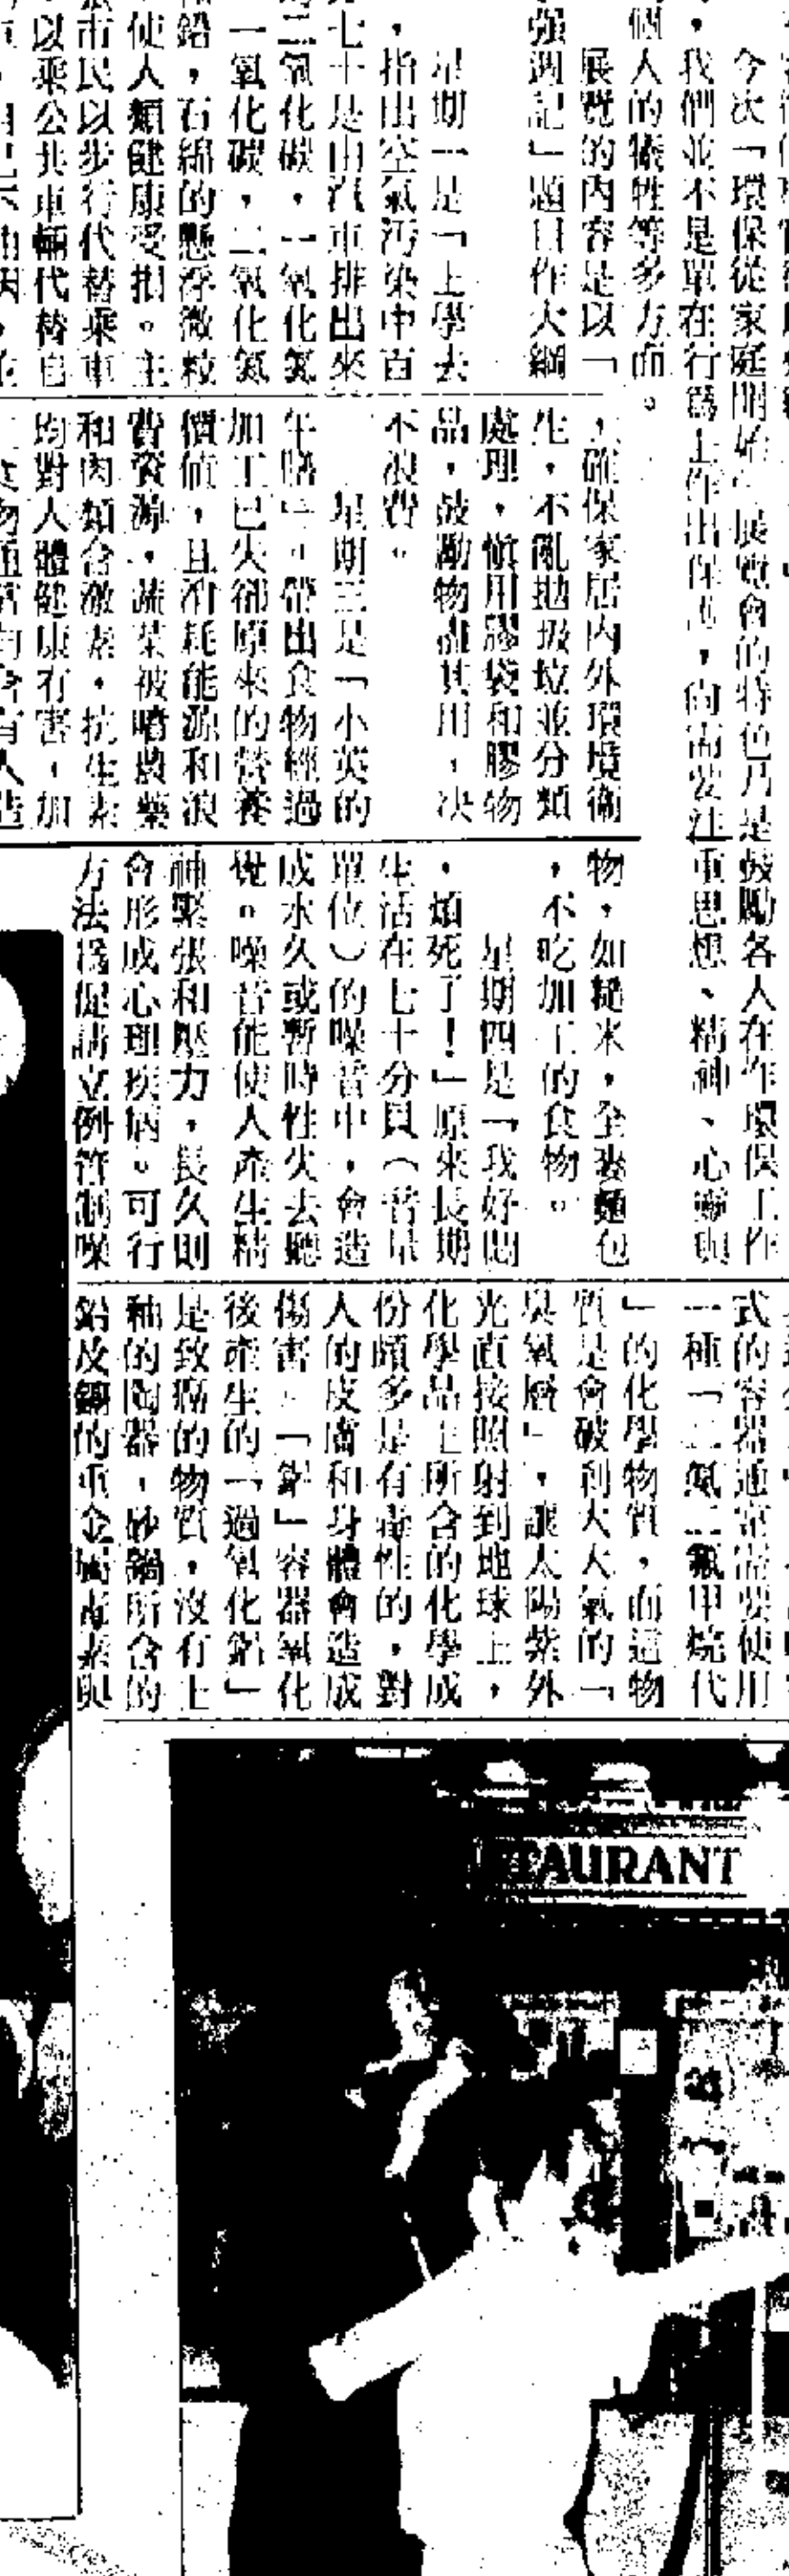 今次「環保從家庭開始」展覽會的特色乃是鼓勵各人在作環保工作
，我們並不是單在行爲上作出保護，尙需要注重思想、精神、心靈與
個人的犧牲等多方面。
展覽的內容是以「
强週記」題目作大綱
星期一是「上學去
，指出空氣汚染中百
七十是由汽車排出來
二氧化碳，一氧化氮
一氧化碳，二氧化氮
鉛，石綿的懸浮微粒
使人類健康受損。主
市民以步行代替乘車
以乘公共車輛代替自
，確保家居內外環境衞
生，不亂拋圾垃並分類
處理，愼用膠袋和膠物
品，鼓勵物盡其用，决
不浪費。
星期三是「小英的
午膳」。帶出食物經過
加工已失卻原來的營養
價值，且消耗能源和浪
費資源，蔬菜被噴農藥
和肉類含激素，抗生素
均對人體健康有害，加
物，如糙米，全麥麵包
，不吃加工的食物。
星期四是「我好悶
，煩死了！」原來長期
生活在七十分貝（音量
單位）的噪音中，會造
成永久或暫時性失去聽
覺。噪音能使人產生精
神緊張和壓力，長久則
會形成心理疾病。可行
方法爲促請立例管制噪
式的容器通常需要使用
一種「二氯二氟甲烷代
」的化學物質，而這物
質是會破利大大氣的「
臭氧層」，讓太陽紫外
光直接照射到地球上，
化學品上所含的化學成
份頗多是有毒性的，對
人的皮膚和身體會造成
傷害。「鋁」容器氧化
後產生的「過氧化鋁」
是致癌的物質，沒有上
釉的陶器，砂鍋所含的
鉛及鎘的重金屬毒素與
TAURANT